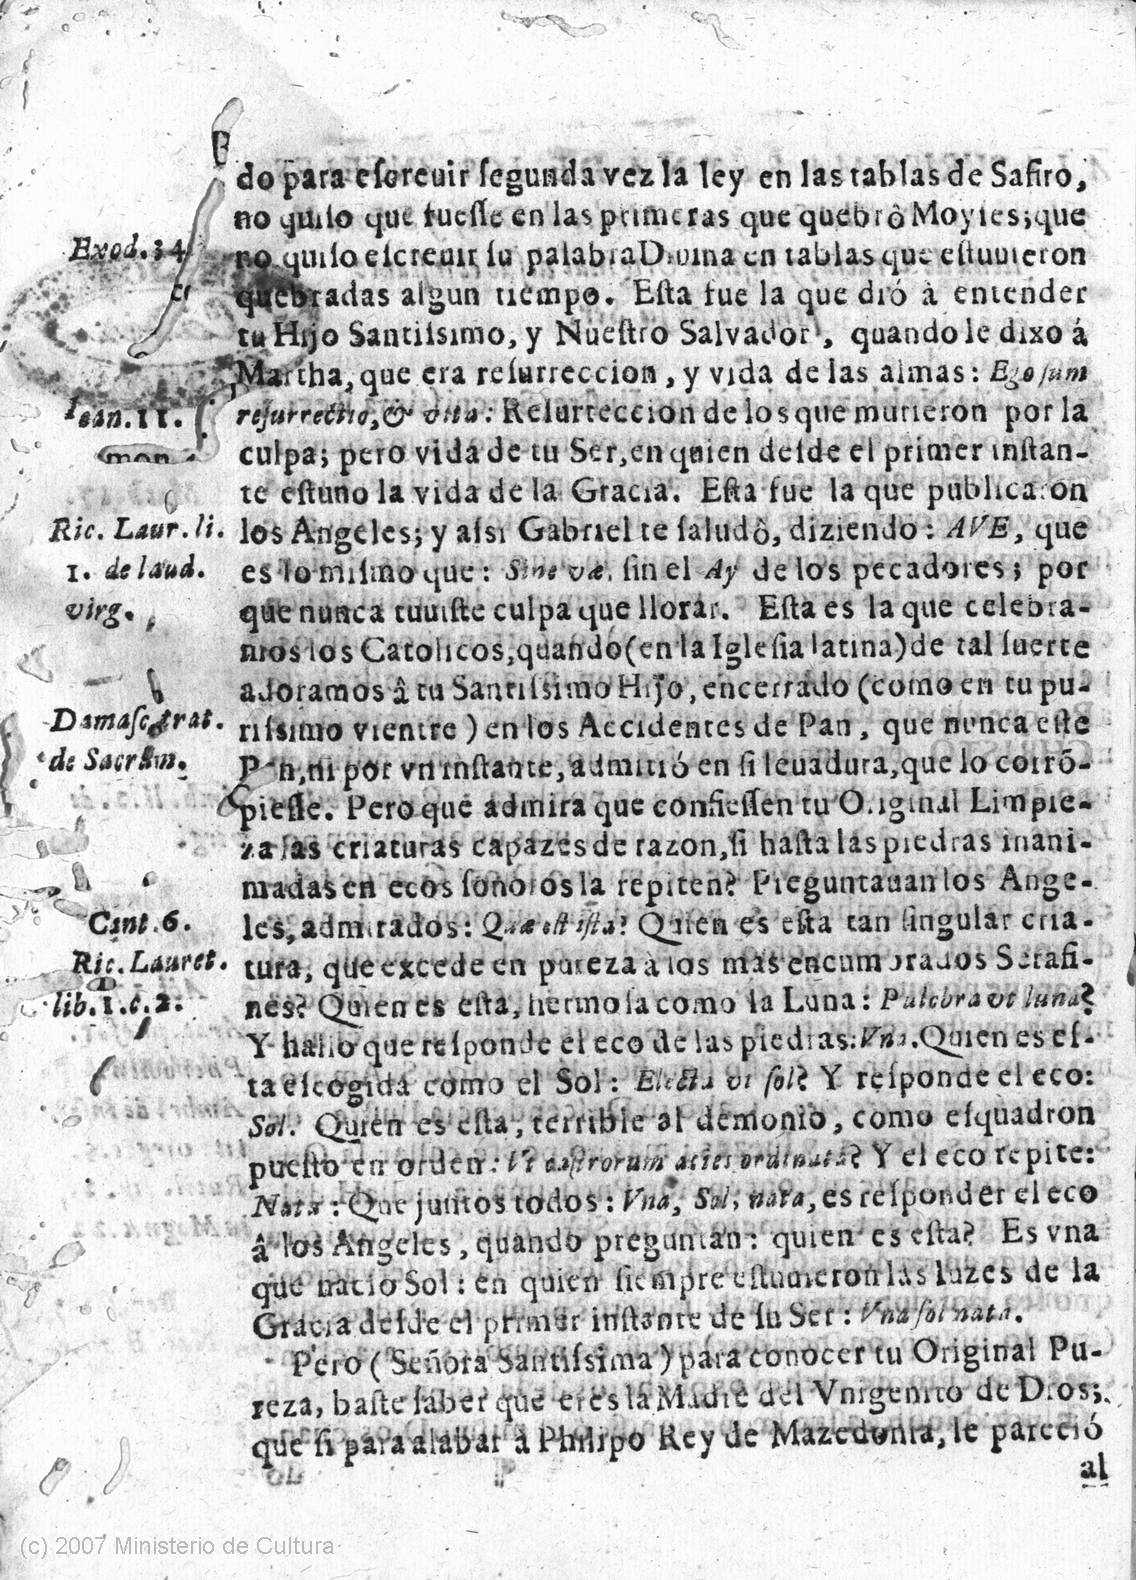 do para eſcreuir ſegunda vez la ley en las tablas de Safiro,
no quiſo que fueſſe en las primeras que quebrô Moyſes; que
no quiſo eſcreuir ſu palabra Diuina en tablas que eſtuuieron
quebradas algun tiempo. Eſta fue la que dió à entender
tu Hijo Santiſsimo, y Nueſtro Salvador, quando le dixo á
Martha, que era reſurreccion, y vida de las almas: Ego ſum
reſurrectio, & vita: Reſurreccion de los que murieron por la
culpa; pero vida de tu Ser, en quien deſde el primer inſtan-
te eſtuuo la vida de la Gracia. Eſta fue la que publicaron
los Angeles; y aſsi Gabriel te ſaludô, diziendo: AVE, que
es lo miſmo que: Sine væ, ſin el Ay de los pecadores; por
que nunca tuuiſte culpa que llorar. Eſta es la que celebra-
mos los Catolicos, quando (en la Igleſia latina) de tal ſuerte
adoramos â tu Santiſsimo Hijo, encerrado (como en tu pu-
riſsimo vientre) en los Accidentes de Pan, que nunca eſte
Pan, ni por vn inſtante, admitió en ſi leuadura, que lo corrõ-
pieſſe. Pero què admira que confieſſen tu Original Limpie-
za las criaturas capazes de razon, ſi haſta las piedras inani-
madas en ecos ſonoros la repiten? Preguntauan los Ange-
les, admirados: Quæ eſt iſta? Quien es eſta tan ſingular cria-
tura, que excede en pureza à los mas encumbrados Serafi-
nes? Quien es eſta, hermoſa como la Luna: Pulchra vt luna?
Y hallo que reſponde el eco de las piedras: Vna. Quien es eſ-
ta eſcogida como el Sol: Electa vt ſol? Y reſponde el eco:
Sol. Quien es eſta, terrible al demonio, como eſquadron
pueſto en orden: Vt caſtrorum acies ordinata? Y el eco repite:
Nata: Que juntos todos: Vna, Sol, nata, es reſponder el eco
â los Angeles, quando preguntan: quien es eſta? Es vna
que naciò Sol: en quien ſiempre eſtuuieron las luzes de la
Gracia deſde el primer inſtante de ſu Ser: Vna ſol nata.
Pero (Señora Santiſsima) para conocer tu Original Pu-
reza, baſte ſaber que eres la Madre del Vnigenito de Dios;
que ſi para alabar à Philipo Rey de Mazedonia, le pareció
al
Exod. 34.
Ioan. 11.
Ric. Laur. li.
1. de laud.
virg.
Damaſc. trat.
de Sacram.
Cant. 6.
Ric. Lauret.
lib. 1. c. 2.
(c) 2007 Ministerio de Cultura